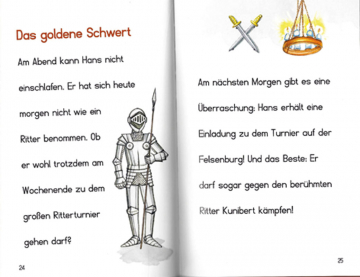 Das goldene Schwert
Am Abend kann Hans nicht
einschlafen. Er hat sich heute
morgen nicht wie ein
Ritter benommen. Ob
er wohl trotzdem am
Wochenende zu dem
großen Ritterturnier
gehen darf?
24
Am nächsten Morgen gibt es eine
Überraschung: Hans erhält eine
Einladung zu dem Turnier auf der
Felsenburg! Und das Beste: Er
darf sogar gegen den berühmten
Ritter Kunibert kämpfen!
25